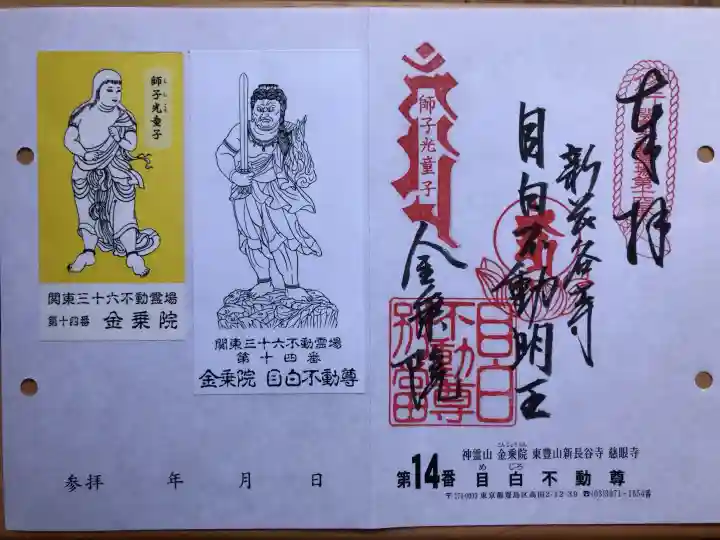 奉拝
新長谷寺
目白不動明王
金乗院
師子光童子
目白
不動尊
別當
こんじょういん
神霊山 金乗院 東豊山新長谷寺 慈眼寺
めじろ
第14番 目白不動尊
東京都豊島区高田2-12-39
師子光童子
関東三十六不動霊場
第十四番 金乗院
関東三十六不動霊場
第十四番
金乗院 目白不動尊
参拝 年 月 日